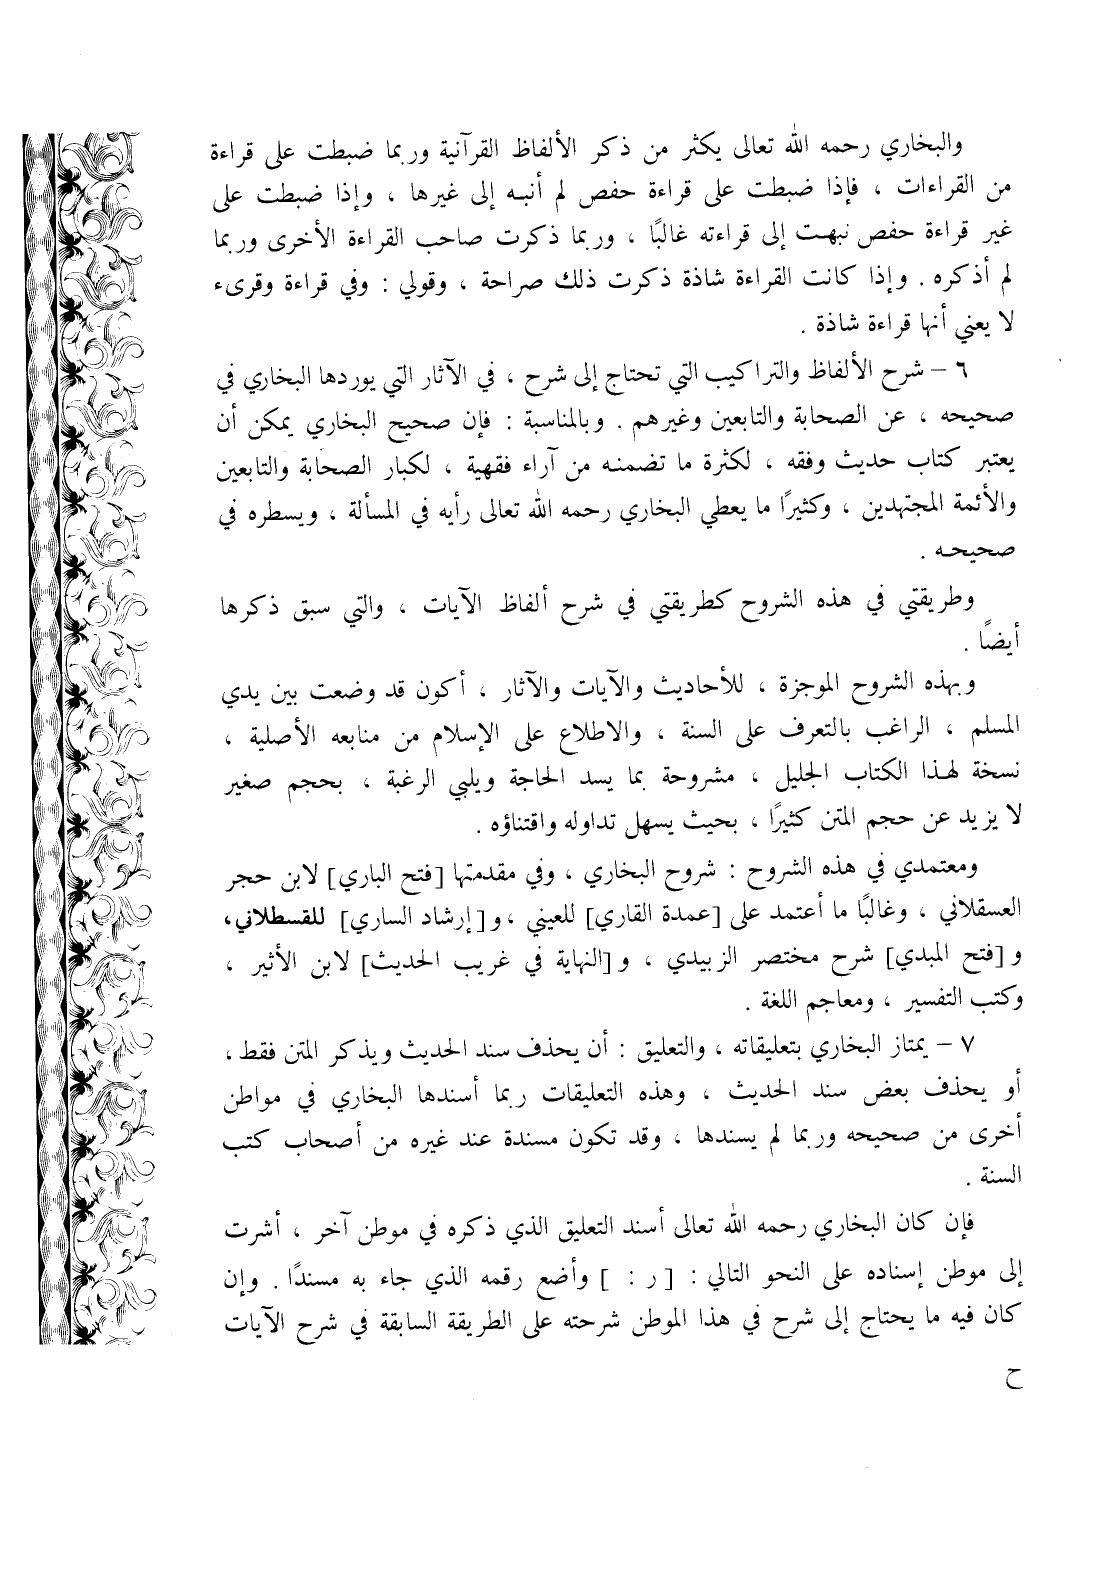 والبخاري رحمه الله تعالى يكثر من ذكر الألفاظ القرآنية وربما ضبطت على قراءة
من القراءات ، فإذا ضبطت على قراءة حفص لم أنبه إلى غيرها ، وإذا ضبطت على
غير قراءة حفص نبهت إلى قراءته غالبًا ، وربما ذكرت صاحب القراءة الأخرى وربما
لم أذكره . وإذا كانت القراءة شاذة ذكرت ذلك صراحة ، وقولي : وفي قراءة وقرىء
لا يعني أنها قراءة شاذة .
٦ – شرح الألفاظ والتراكيب التي تحتاج إلى شرح ، في الآثار التي يوردها البخاري في
صحيحه ، عن الصحابة والتابعين وغيرهم . وبالمناسبة : فإن صحيح البخاري يمكن أن
يعتبر كتاب حديث وفقه ، لكثرة ما تضمنه من آراء فقهية ، لكبار الصحابة والتابعين
والأئمة المجتهدين ، وكثيرًا ما يعطي البخاري رحمه الله تعالى رأيه في المسألة ، ويسطره في
صحيحه .
وطريقتي في هذه الشروح كطريقتي في شرح ألفاظ الآيات ، والتي سبق ذكرها
أيضًا .
وبهذه الشروح الموجزة ، للأحاديث والآيات والآثار ، أكون قد وضعت بين يدي
المسلم ، الراغب بالتعرف على السنة ، والاطلاع على الإسلام من منابعه الأصلية ،
نسخة لهذا الكتاب الجليل ، مشروحة بما يسد الحاجة ويلبي الرغبة ، بحجم صغير
لا يزيد عن حجم المتن كثيرًا ، بحيث يسهل تداوله واقتناؤه .
ومعتمدي في هذه الشروح : شروح البخاري ، وفي مقدمتها [فتح الباري] لابن حجر
العسقلاني ، وغالبًا ما أعتمد على [عمدة القاري] للعيني ، و[إرشاد الساري] للقسطلاني،
و [فتح المبدي] شرح مختصر الزبيدي ، و [النهاية في غريب الحديث] لابن الأثير ،
وكتب التفسير ، ومعاجم اللغة .
٧ – يمتاز البخاري بتعليقاته ، والتعليق : أن يحذف سند الحديث ويذكر المتن فقط ،
أو يحذف بعض سند الحديث ، وهذه التعليقات ربما أسندها البخاري في مواطن
أخرى من صحيحه وربما لم يسندها ، وقد تكون مسندة عند غيره من أصحاب كتب
السنة .
فإن كان البخاري رحمه الله تعالى أسند التعليق الذي ذكره في موطن آخر ، أشرت
إلى موطن إسناده على النحو التالي : [ ر : ] وأضع رقمه الذي جاء به مسندًا . وإن
كان فيه ما يحتاج إلى شرح في هذا الموطن شرحته على الطريقة السابقة في شرح الآيات
ح